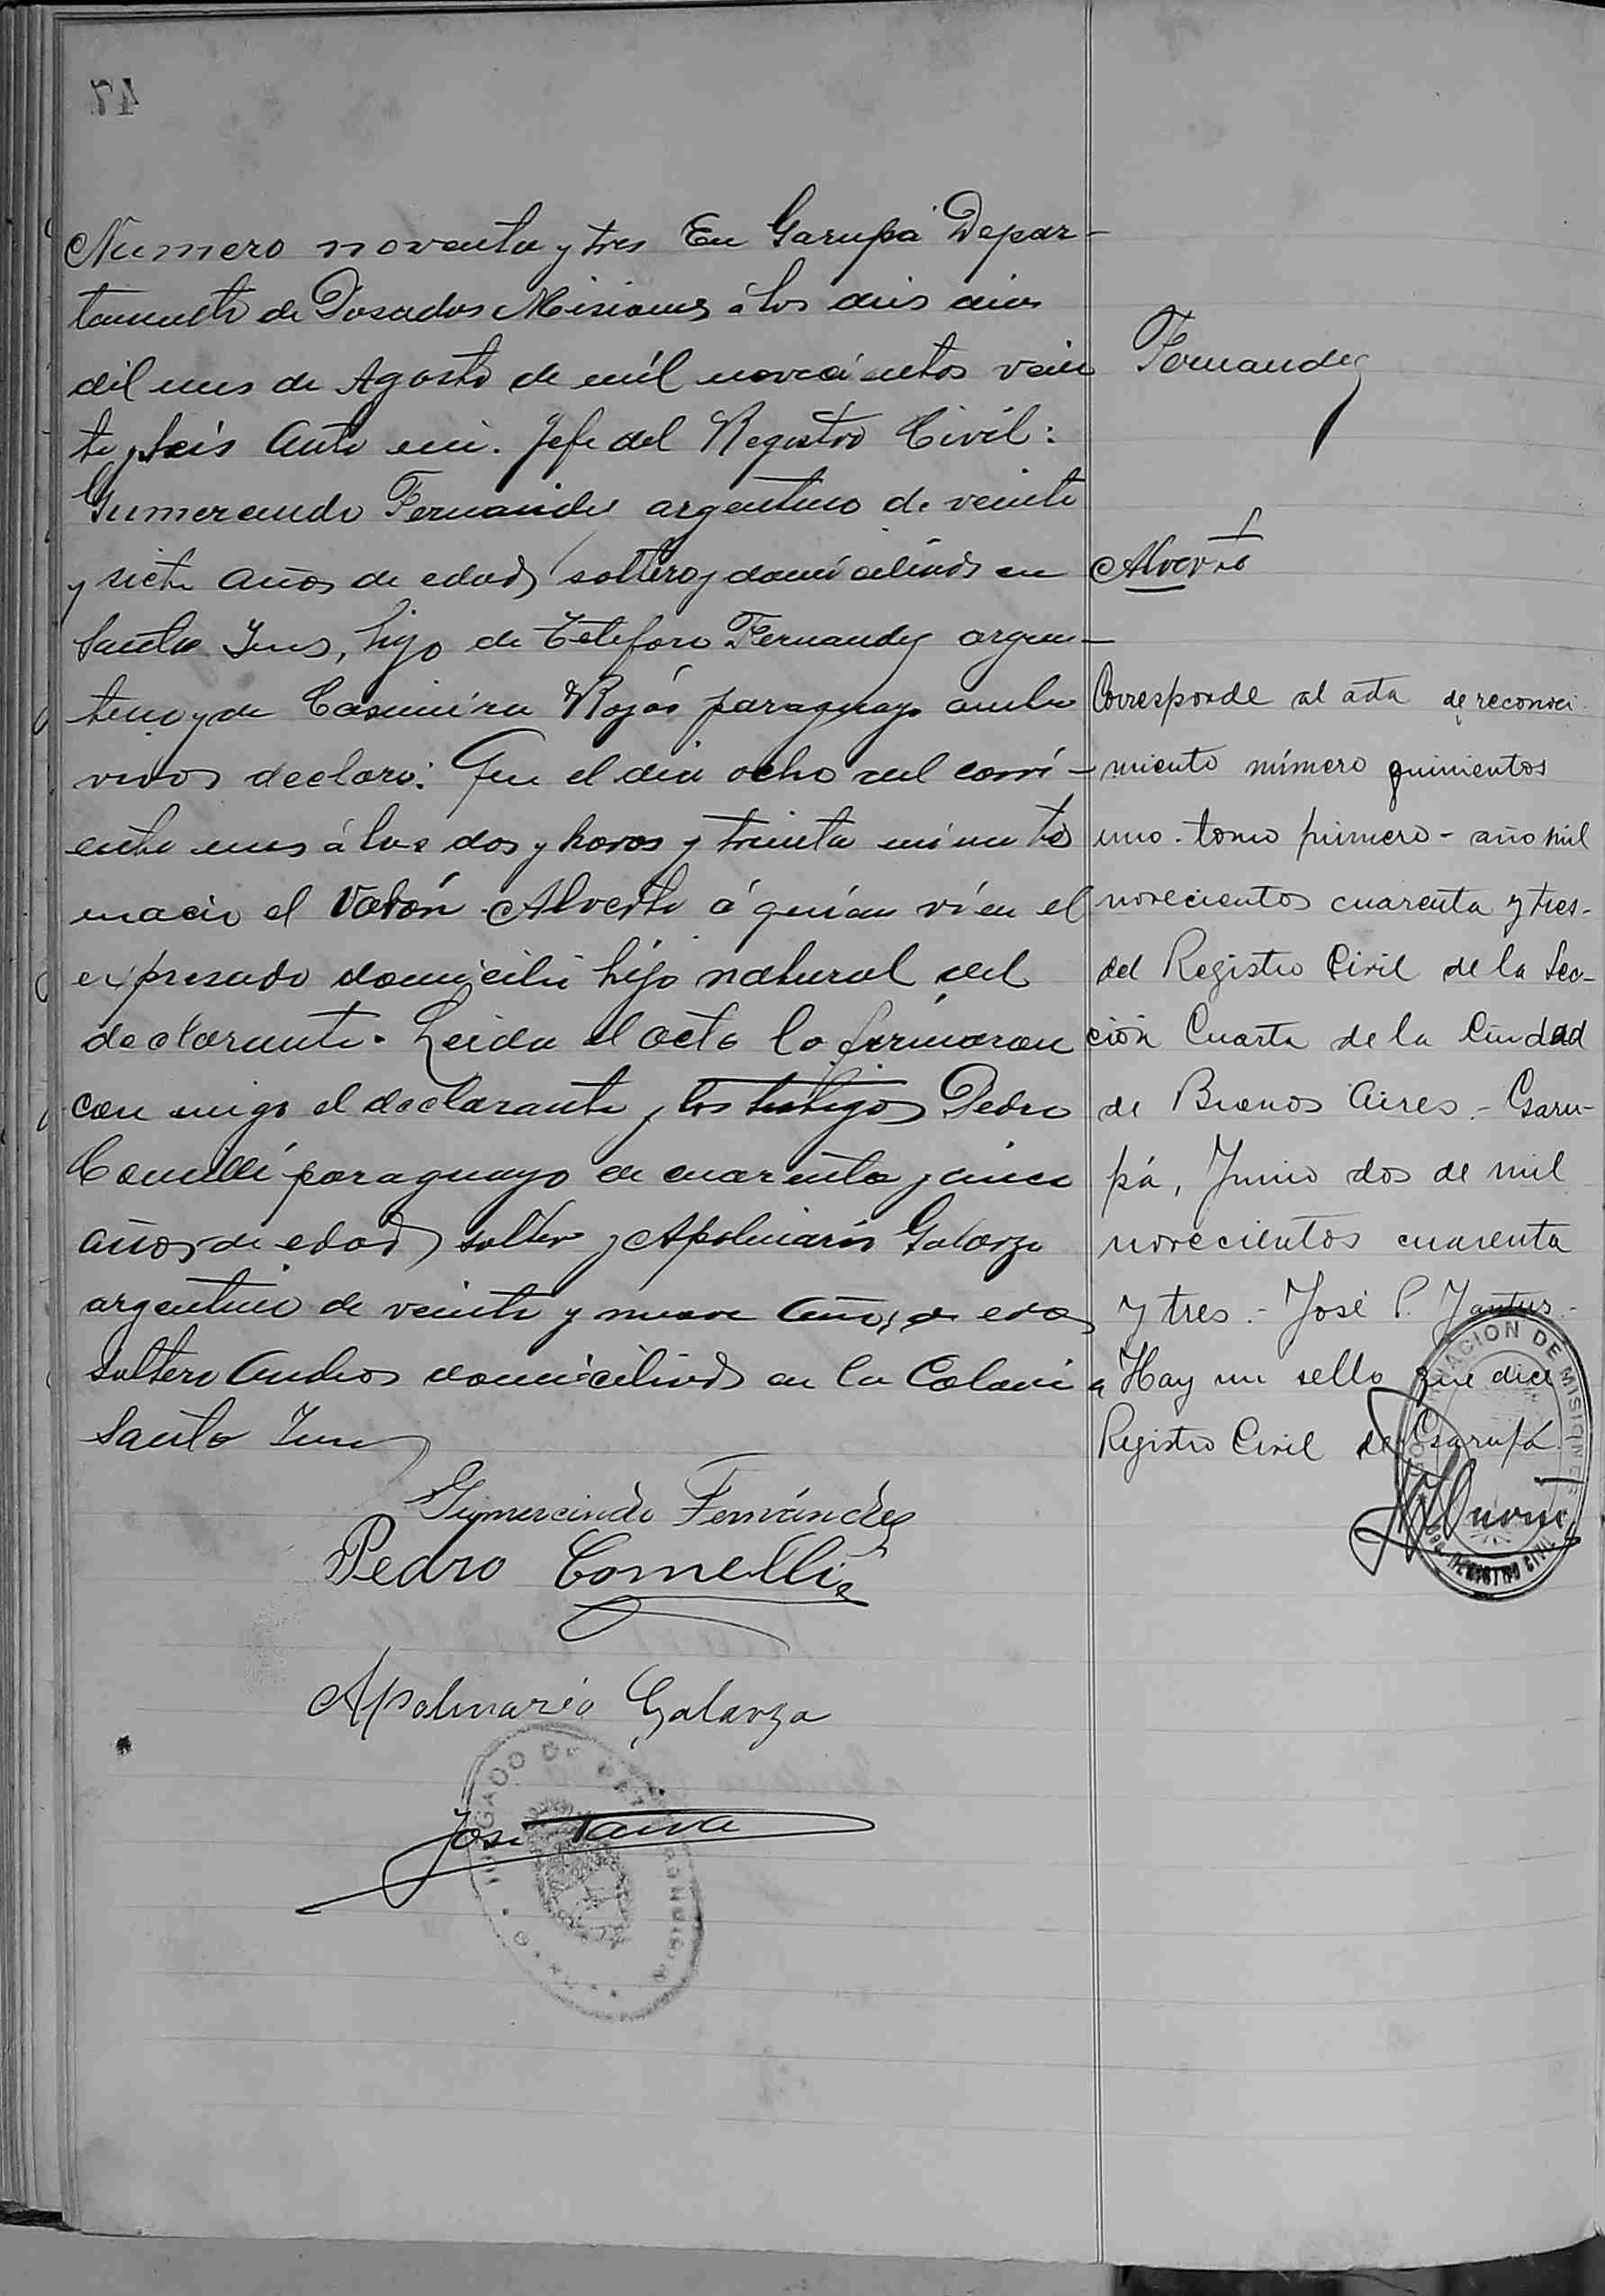 47
Numero noventa y tres En Garupá Depar-
tamento de Posadas Misiones á los dies dias
del mes de Agosto de mil novecientos vein
te y seis Ante mi. Jefe del Registro Civil:
Gumercindo Fernandes argentino de veinte
y siete años de edad soltero y domiciliado en
Santa Ines, hijo de Telefaro Fernandez argen-
tino y de Casimira Rojas paraguaya ambos
vivos declaro: Que el dia ocho del corri-
ente mes á las dos y horas y treinta minutos
nacio el Varón Alverto á quien ví en el
expresado domicilio hijo natural del
declarante. Leida el acta la firmaron
con migo el declarante y los testigos Pedro
Comelli paraguayo de cuarenta y cinco
años de edad soltero y Apolinario Galarza
argentino de veinte y nueve años de edad
soltero Ambos domiciliados en la Colonia
Santa Ines
Gumercindo Fernández
Pedro Comelli
Apolinario Galarza
José
JUZGADO DE
Fernandez
Alverto
Corresponde al acta de reconoci-
miento número quinientos
uno. tomo primero - año mil
novecientos cuarenta y tres-
del Registro Civil de la Sec-
ción Cuarta de la Ciudad
de Buenos Aires.- Garu-
pá, Junio dos de mil
novecientos cuarenta
y tres.- José P.
Hay un sello que dice
Registro Civil de Garupá
GOBERNACION DE MISIONES
REGISTRO CIVIL